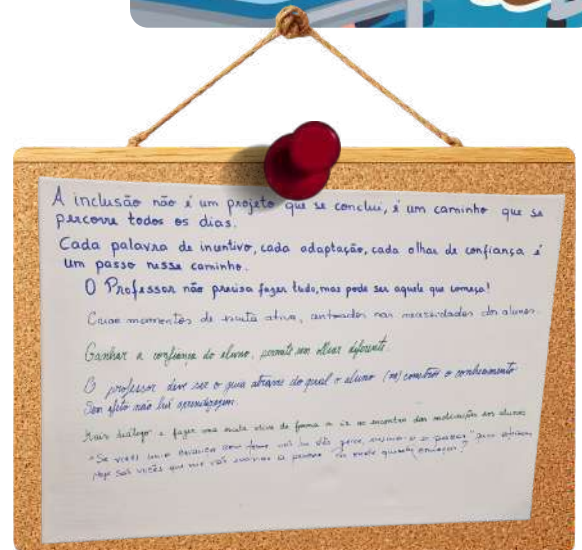 A inclusão não é um projeto que se conclui, é um caminho que se
percorre todos os dias.
Cada palavra de incentivo, cada adaptação, cada olhar de confiança é
um passo nesse caminho.
O Professor não precisa fazer tudo, mas pode ser aquele que começa!
Criar momentos de escuta ativa, centrados nas necessidades dos alunos.
Ganhar a confiança do aluno, permite um olhar diferente.
O professor deve ser o guia através do qual o aluno (re)constrói o conhecimento.
Sem afeto não há aprendizagem.
Mais diálogo e fazer uma escuta ativa de forma a ir ao encontro das motivações dos alunos
"Se vires uma criança com fome não lhe dês peixe, ensina-a a pescar"